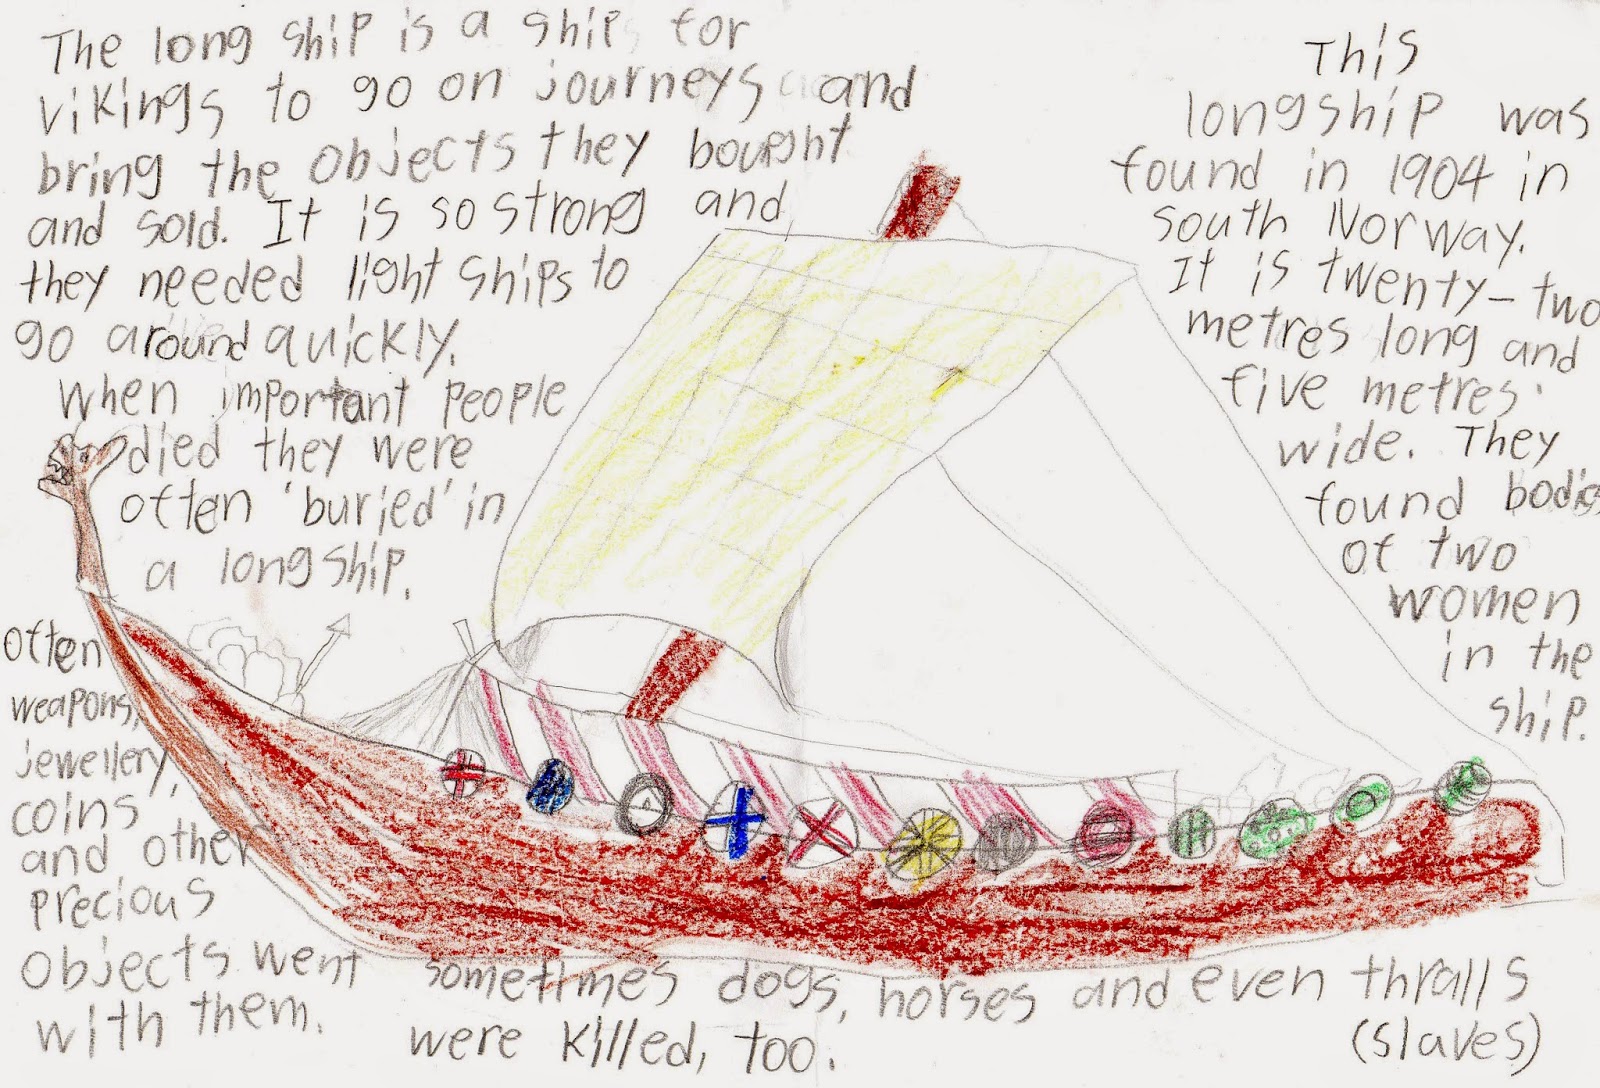 The long ship is a ship for
vikings to go on journeys and
bring the objects they bought
and sold. It is so strong and
they needed light ships to
go around quickly.
When important people
died they were
often 'buried' in
a longship.
often
weapons,
jewellery,
coins
and other
precious
objects went
with them.
sometimes dogs, horses and even thralls
(slaves)
were killed, too.
This
longship was
found in 1904 in
south Norway.
It is twenty-two
metres long and
five metres
wide. They
found bodies
of two
women
in the
ship.